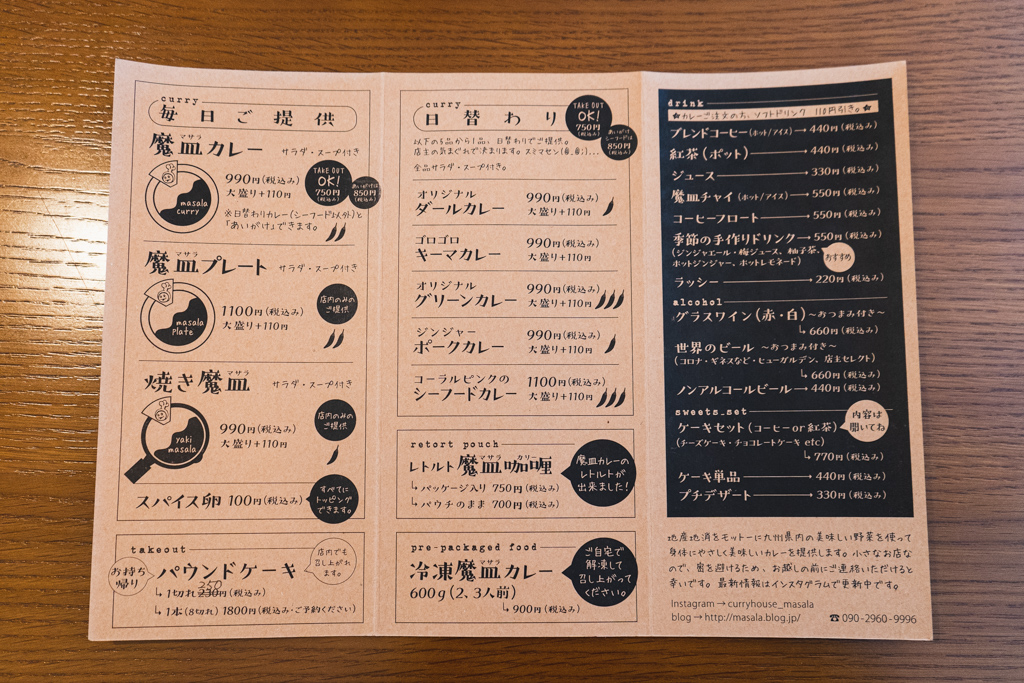 curry
毎日ご提供
マサラ
魔皿カレー サラダ・スープ付き
masala
curry
990円(税込み)
大盛り+110円
TAKE OUT
OK!
750円
(税込み)
あいがけは
850円
(税込み)
※日替わりカレー(シーフード以外)と
「あいがけ」できます。
マサラ
魔皿プレート サラダ・スープ付き
masala
Plate
1100円(税込み)
大盛り+110円
店内のみの
ご提供
マサラ
焼き魔皿 サラダ・スープ付き
yaki
masala
990円(税込み)
大盛り+110円
店内のみの
ご提供
スパイス卵 100円(税込み)
すべてに
トッピング
できます。
takeout
お持ち
帰り
パウンドケーキ
店内でも
召し上がれ
ます。
↳1切れ 230円(税込み)
250
↳1本(8切れ) 1800円(税込み・ご予約ください)
curry
日替わり
TAKE OUT
OK!
750円
(税込み)
あいがけ
シーフードは
850円
(税込み)
以下の5品から1品、日替わりでご提供。
店主の気まぐれで決まります。スミマセン(@_@;)...
全品サラダ・スープ付き。
オリジナル
ダールカレー
990円(税込み)
大盛り+110円
ゴロゴロ
キーマカレー
990円(税込み)
大盛り+110円
オリジナル
グリーンカレー
990円(税込み)
大盛り+110円
ジンジャー
ポークカレー
990円(税込み)
大盛り+110円
コーラルピンクの
シーフードカレー
1100円(税込み)
大盛り+110円
retort pouch
マサラ カリー
レトルト魔皿咖喱
↳パッケージ入り 750円(税込み)
↳パウチのまま 700円(税込み)
魔皿カレーの
レトルトが
出来ました!
pre-packaged food
マサラ
冷凍魔皿カレー
600g(2、3人前)
↳900円(税込み)
ご自宅で
解凍して
召し上がって
ください。
drink
★カレーご注文の方、ソフトドリンク 110円引き。★
ブレンドコーヒー(ホット/アイス)→440円(税込み)
紅茶(ポット)→440円(税込み)
ジュース→330円(税込み)
魔皿チャイ(ホット/アイス)→550円(税込み)
コーヒーフロート→550円(税込み)
季節の手作りドリンク→550円(税込み)
(ジンジャエール・梅ジュース、柚子茶、
ホットジンジャー、ホットレモネード)
おすすめ
ラッシー→220円(税込み)
alcohol
グラスワイン(赤・白)〜おつまみ付き〜
↳660円(税込み)
世界のビール 〜おつまみ付き〜
(コロナ・ギネスなど・ヒューガルデン、店主セレクト)
↳660円(税込み)
ノンアルコールビール→440円(税込み)
sweets_set
ケーキセット(コーヒーor紅茶)
(チーズケーキ・チョコレートケーキ etc)
↳770円(税込み)
内容は
聞いてね
ケーキ単品→440円(税込み)
プチデザート→330円(税込み)
地産地消をモットーに九州県内の美味しい野菜を使って
身体にやさしく美味しいカレーを提供します。小さなお店な
ので、密を避けるため、お越しの前にご連絡いただけると
幸いです。最新情報はインスタグラムで更新中です。
Instagram→curryhouse_masala
blog→http://masala.blog.jp/ ☎090-2960-9996